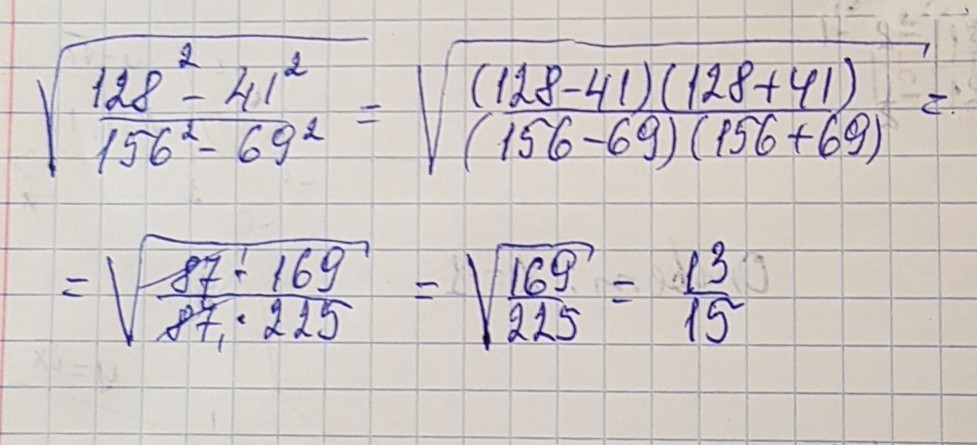 √((128² - 41²)/(156² - 69²)) = √(((128-41)(128+41))/((156-69)(156+69))) =
= √((87 · 169)/(87 · 225)) = √(169/225) = 13/15